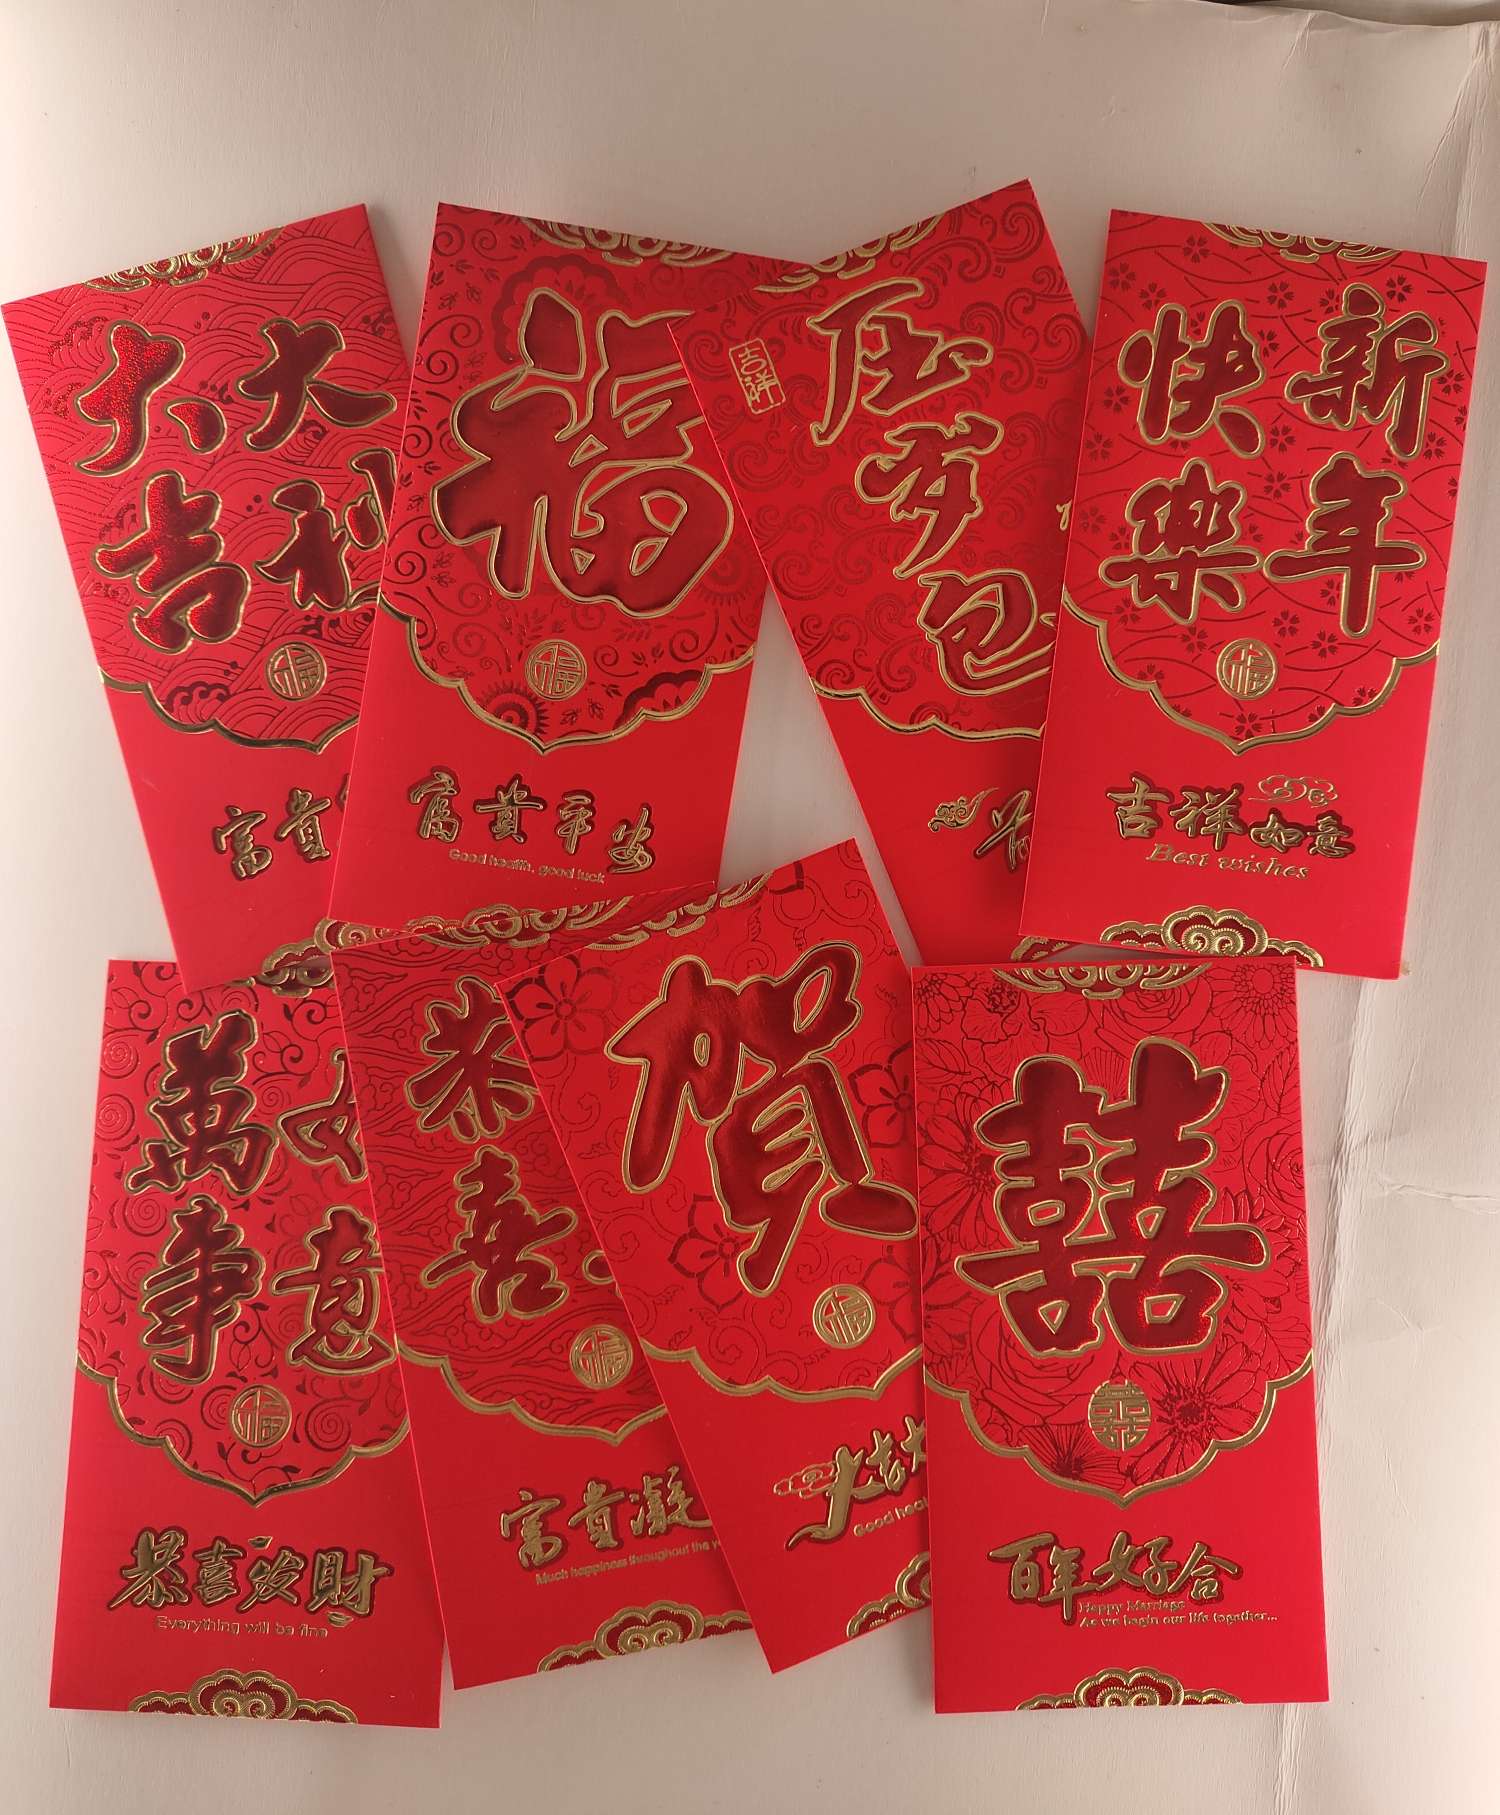 大利
大吉
福
富貴
福
福
富貴平安
Good health, good luck
吉祥
压岁包
新年
快樂
福
吉祥如意
Best wishes
萬事
如意
福
恭喜發財
Everything will be fine
恭喜
福
富貴
Much happiness throughout the
賀
福
Good
囍
囍
百年好合
Happy Marriage
As we begin our life together...